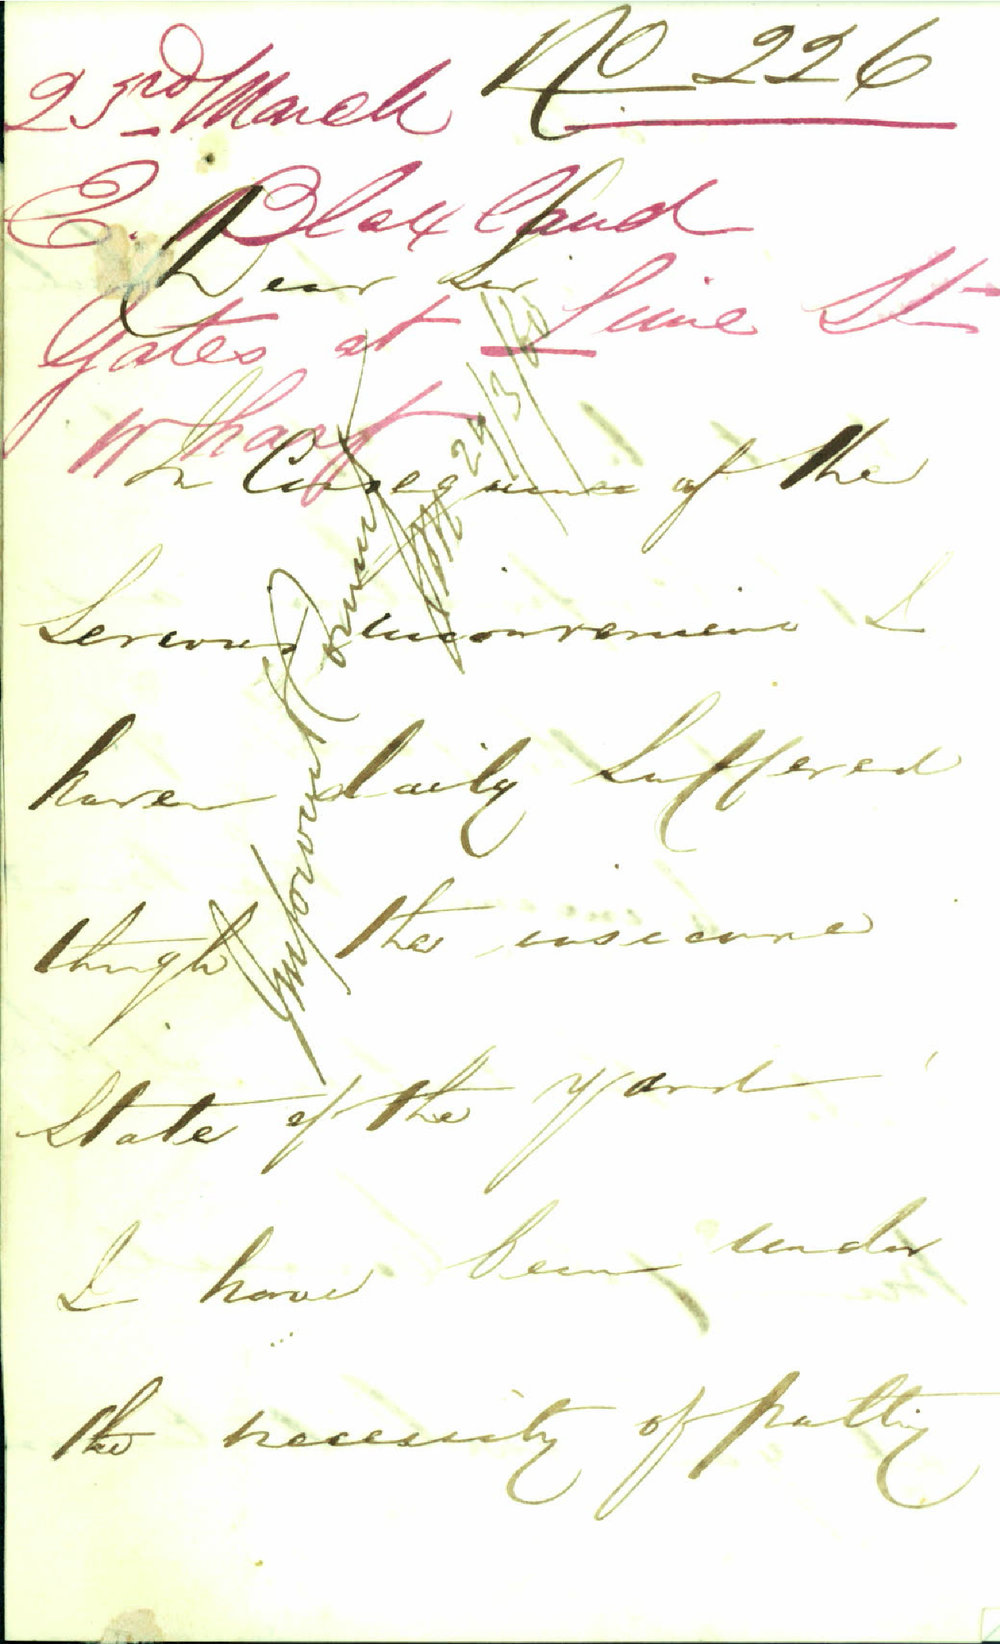 No 226
23rd March
E. Blaxland
Gates at Lime St
Wharf
Dear Sir
In Consequence of the
Serious inconvenience I
have daily suffered
through the insecure
State of the yard
I have been under
the necessity of putting
Improvement Committee
29/3/60